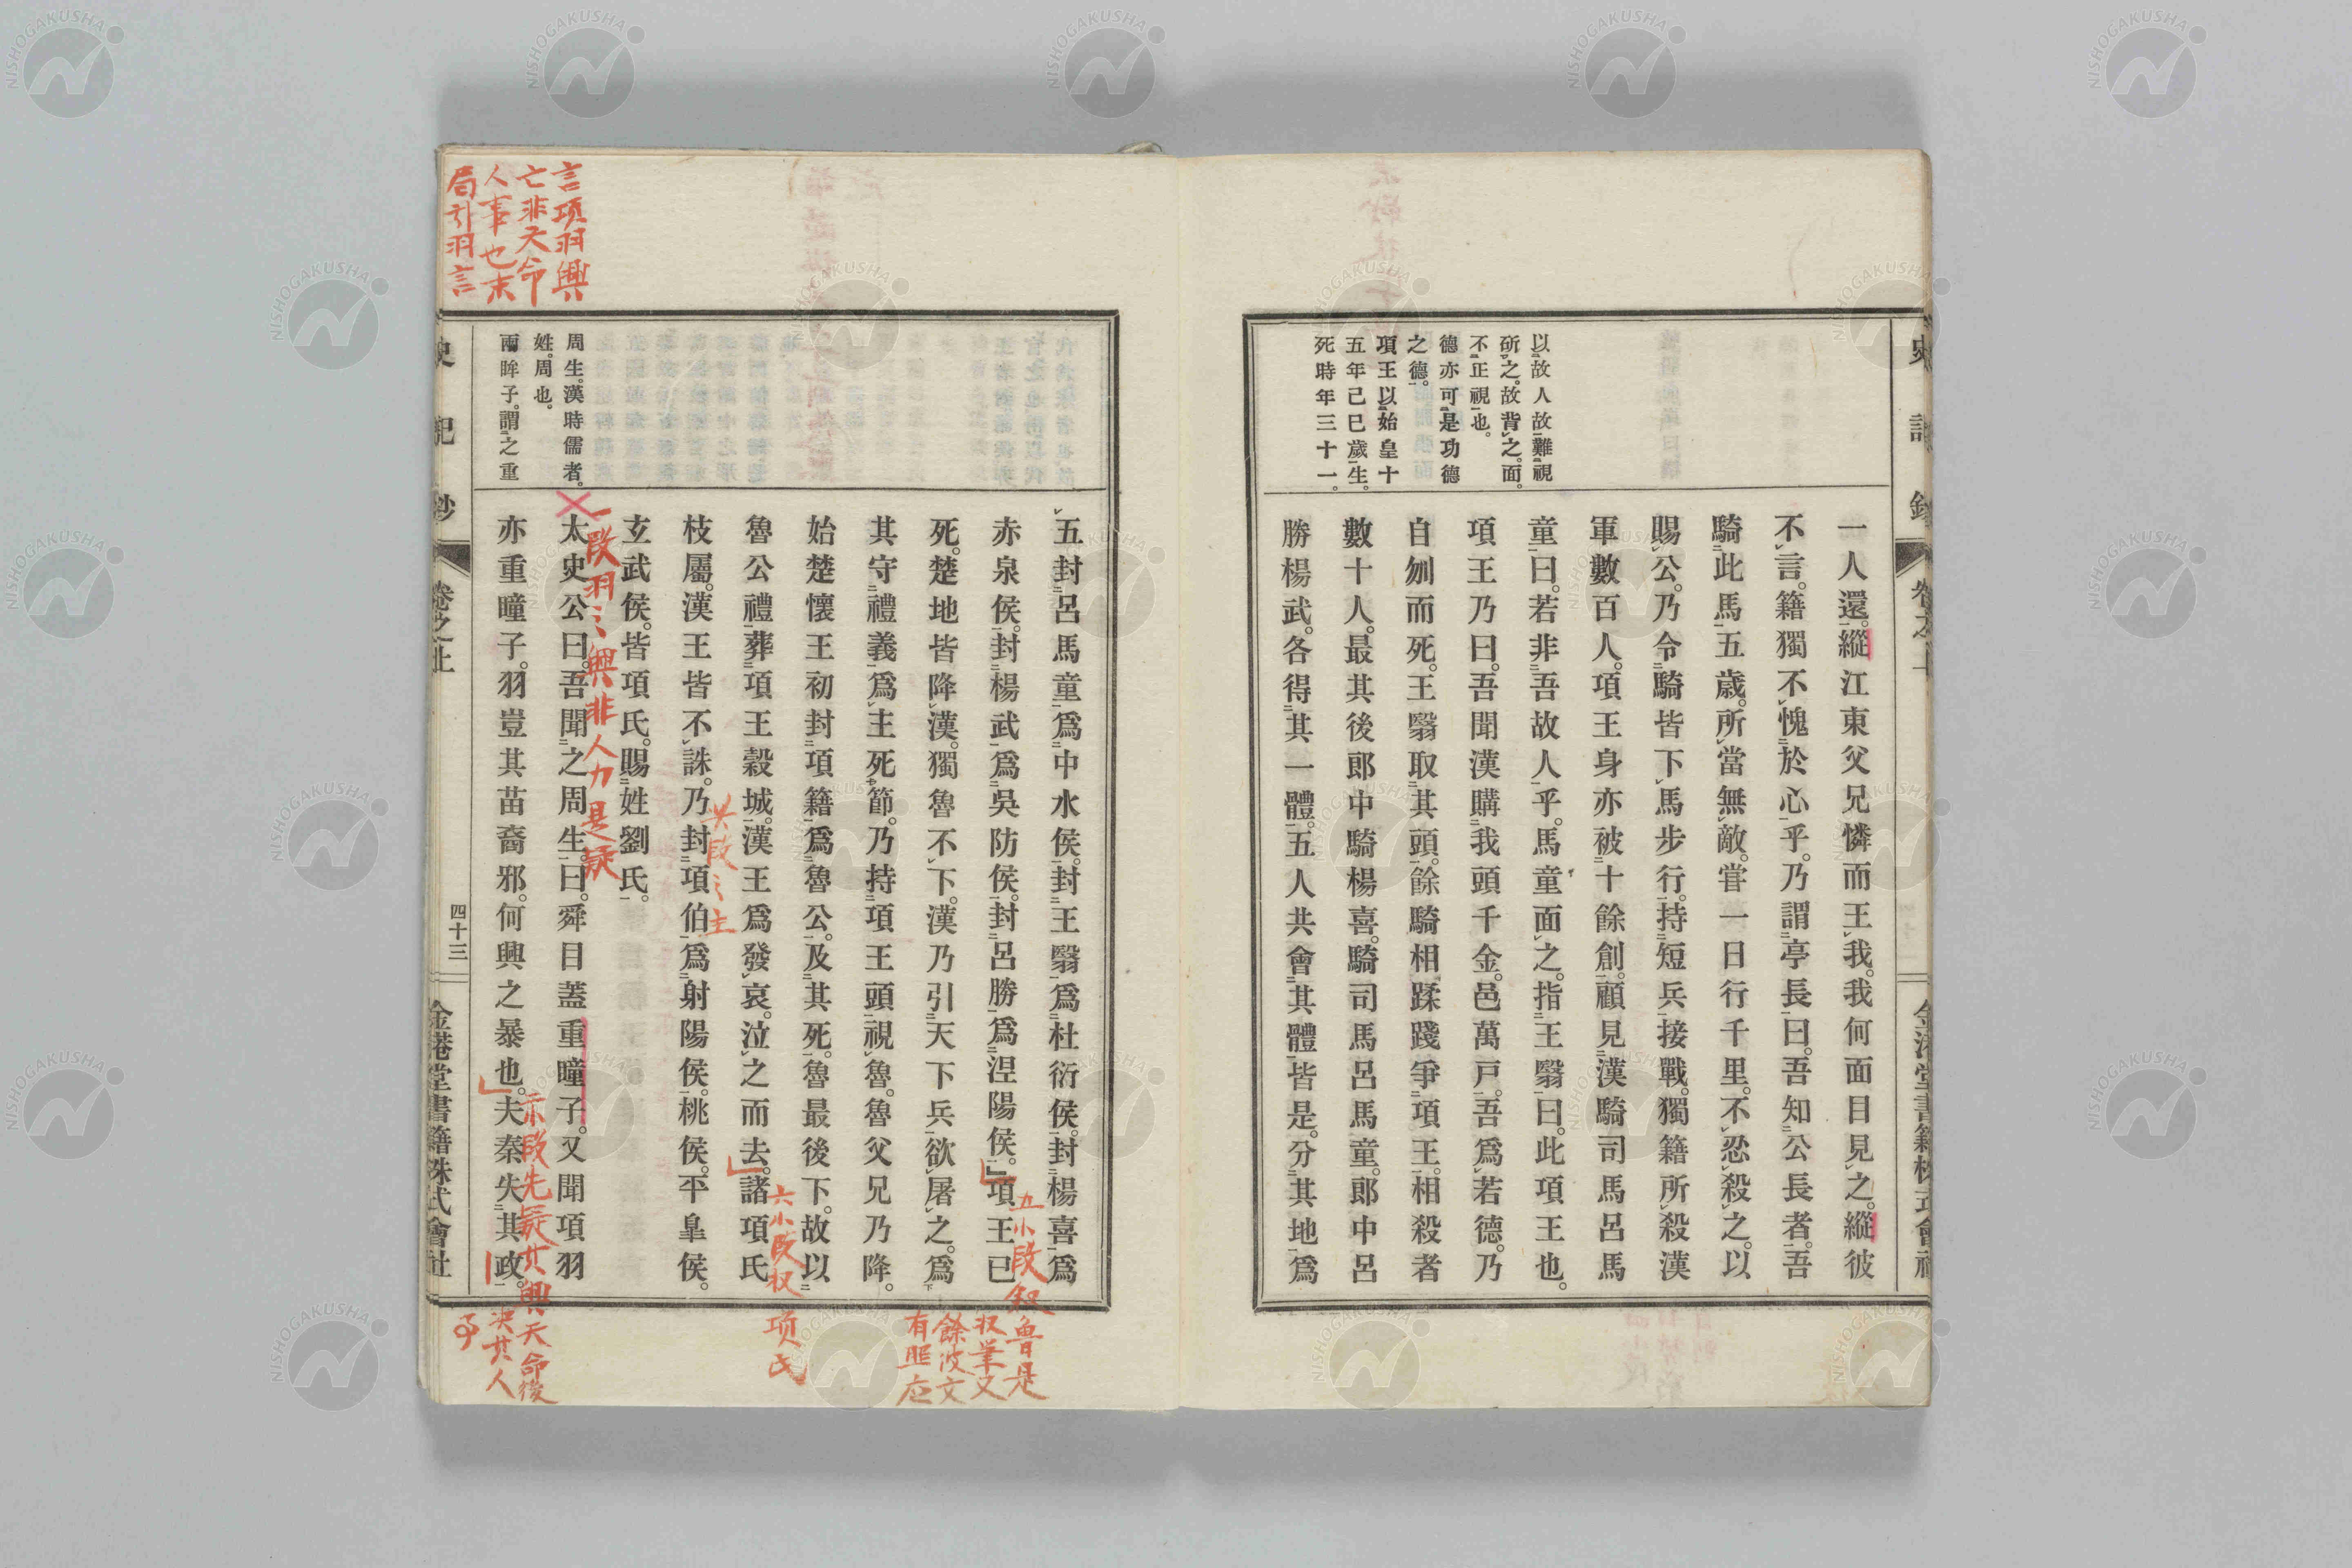 史記鈔
卷之上
金港堂書籍株式會社
以故人故難視
斫之。故背之。面。
不正視也。
德亦可是功德
之德。
項王以始皇十
五年己巳歲生。
死時年三十一。
一人還。縱江東父兄憐而王我。我何面目見之。縱彼
不言。籍獨不愧於心乎。乃謂亭長曰。吾知公長者。吾
騎此馬五歲。所當無敵。嘗一日行千里。不忍殺之。以
賜公。乃令騎皆下馬步行。持短兵接戰。獨籍所殺漢
軍數百人。項王身亦被十餘創。顧見漢騎司馬呂馬
童曰。若非吾故人乎。馬童面之。指王翳曰。此項王也。
項王乃曰。吾聞漢購我頭千金。邑萬戶。吾爲若德。乃
自刎而死。王翳取其頭。餘騎相蹂踐爭項王。相殺者
數十人。最其後郎中騎楊喜。騎司馬呂馬童。郎中呂
勝楊武。各得其一體。五人共會其體皆是。分其地爲
五封呂馬童爲中水侯。封王翳爲杜衍侯。封楊喜爲
赤泉侯。封楊武爲吳防侯。封呂勝爲涅陽侯。項王已
死。楚地皆降漢。獨魯不下。漢乃引天下兵欲屠之。爲
其守禮義爲主死節。乃持項王頭視魯。魯父兄乃降。
始楚懷王初封項籍爲魯公。及其死。魯最後下。故以
魯公禮葬項王穀城。漢王爲發哀。泣之而去。諸項氏
枝屬。漢王皆不誅。乃封項伯爲射陽侯。桃侯。平皐侯。
玄武侯。皆項氏。賜姓劉氏。
太史公曰。吾聞之周生曰。舜目蓋重瞳子。又聞項羽
亦重瞳子。羽豈其苗裔邪。何興之暴也。夫秦失其政。
周生。漢時儒者。
姓。周也。
兩眸子。謂之重
言項羽興
亡非天命
人事也末
局引羽言
一段羽之興非人力是疑
五小段叙魯是
収筆又
餘波文
有照应
六小段収項氏
示段先疑其興天命後
决其人
事
史記鈔
卷之上
四十三
金港堂書籍株式會社